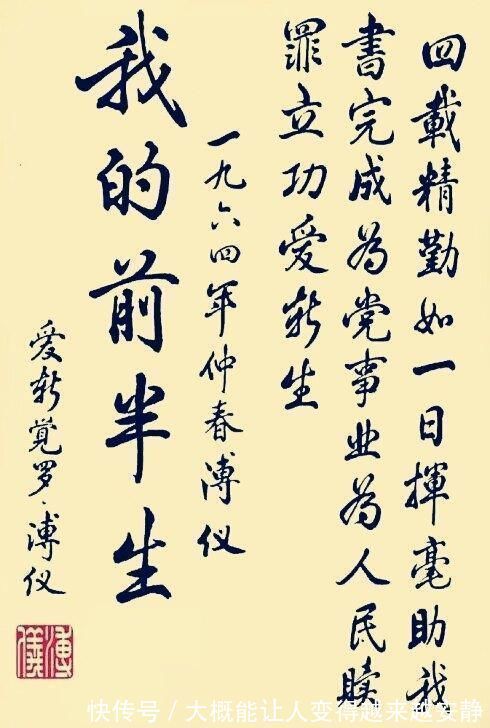 四載精勤如一日揮毫助我
書完成為党事业為人民贖
罪立功爱新生
一九六四年仲春溥仪
我的前半生
爱新覚罗·溥仪
溥儀
快传号/大概能让人变得越来越安静